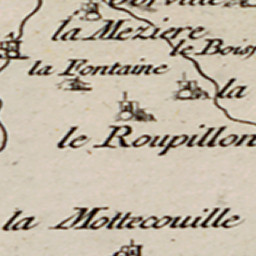 la Meziere
le Bois
la Fontaine
la
le Roupillon
la Mottecouille